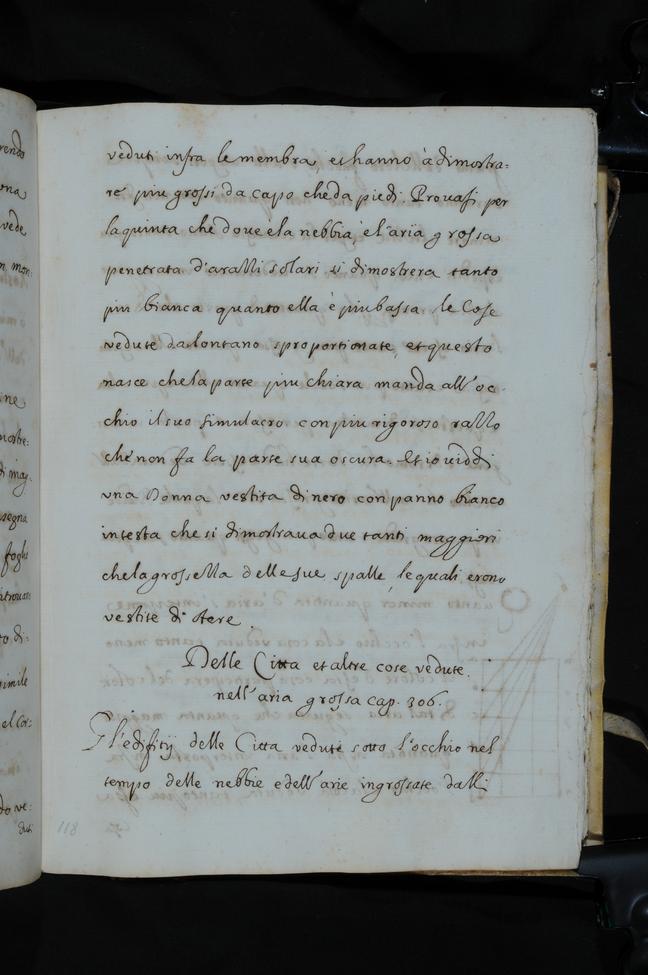 veduti infra le membra, et hanno à dimostra=
re piu grossi da capo che da piedi. Prouasi per
la quinta che doue è la nebbia, è l'aria grossa
penetrata d'aralli solari si dimostrera tanto
piu bianca quanto ella è piu bassa. le Cose
vedute da lontano sproportionate, et questo
nasce che la parte piu chiara manda all'oc-
chio il suo simulacro con piu rigoroso rallo
che non fa la parte sua oscura. Et io viddi
vna Donna vestita di nero con panno bianco
in testa che si dimostraua due tanti maggiori
che la grossella delle sue spalle, le quali erono
vestite di nere.
Delle Citta et altre cose vedute.
nell'aria grossa cap. 306.
Gl'edifitij delle Citta vedute sotto l'occhio nel
tempo delle nebbie e dell'arie ingrossate dalli
118
rendo
ona
vede
mostre:
di mag.
segna
fogli
itrouato
to di:
simile
el Cor:
do ve:
duti